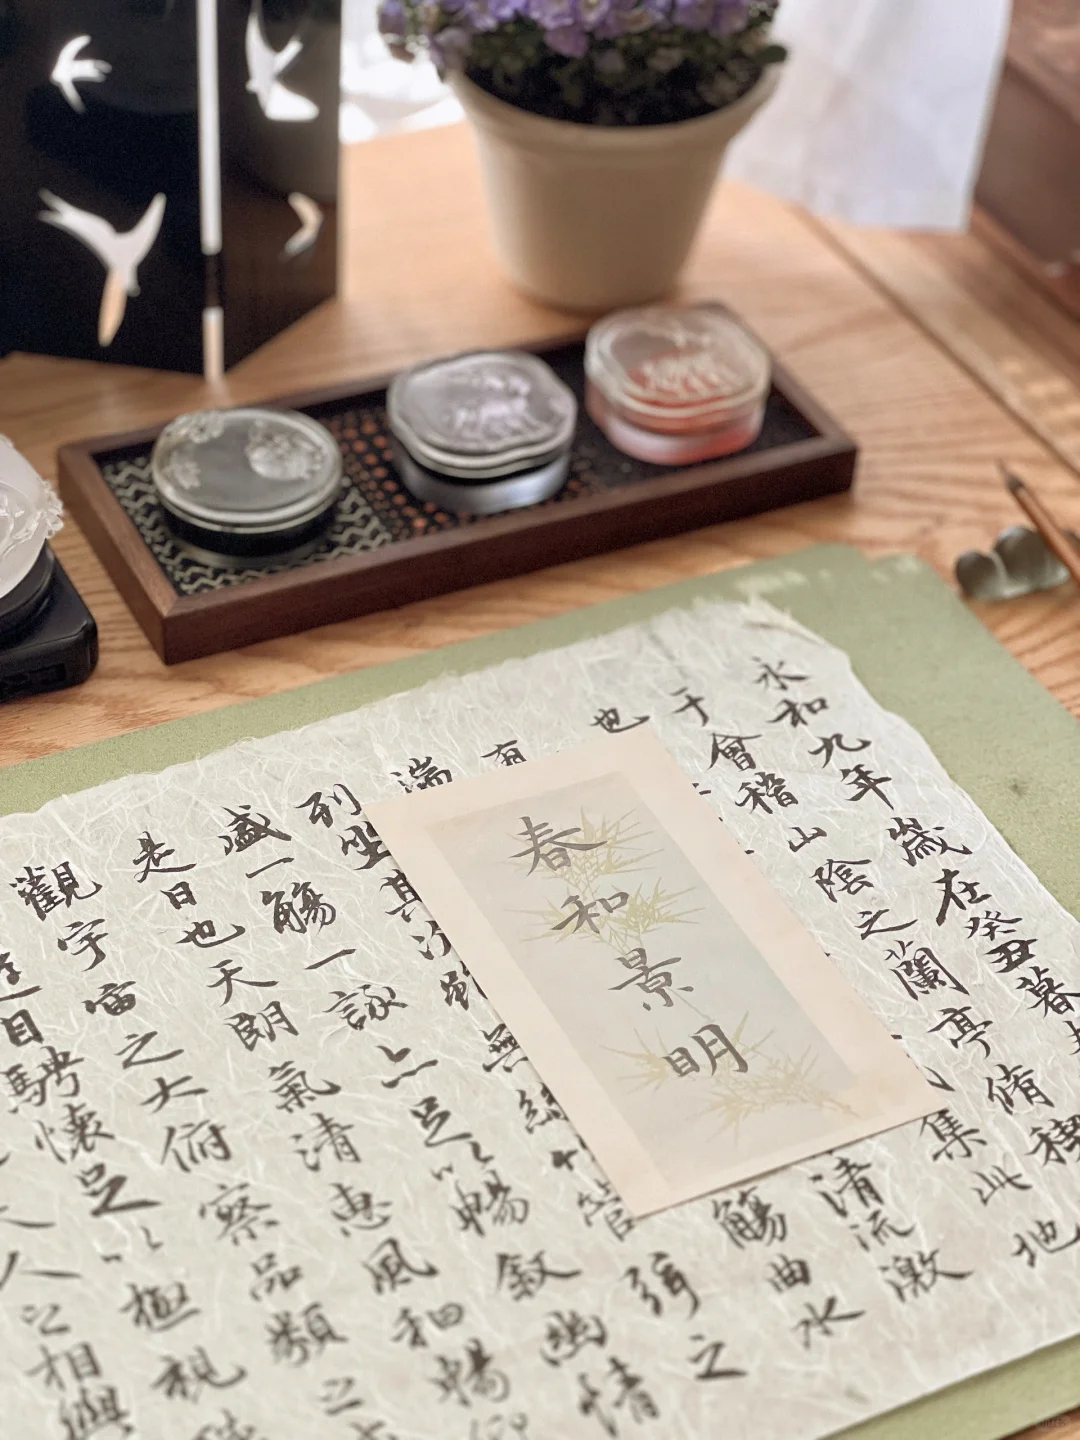 春和景明
永和九年歲在癸丑暮
于會稽山陰之蘭亭脩禊
也 集此地
有 清流激
湍 觴曲水
列坐其次雖無絲竹管弦之
盛一觴一詠亦足以暢敘幽情
是日也天朗氣清惠風和暢仰
觀宇宙之大俯察品類之
遊目騁懷足以極視
夫人之相與